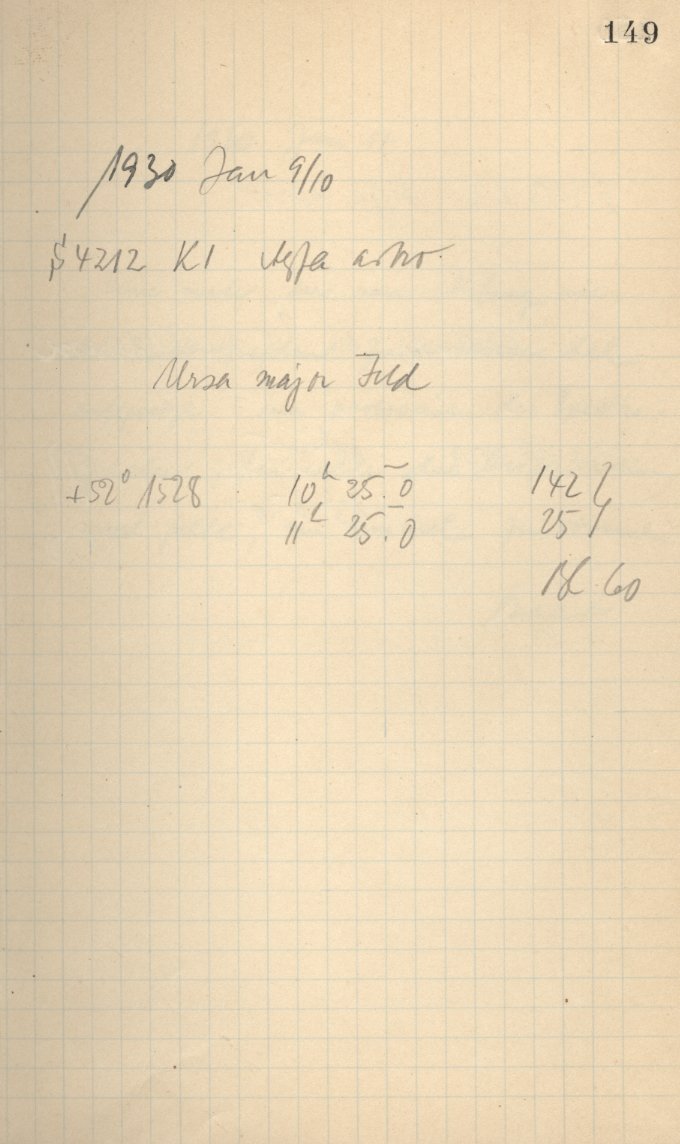 149
1930 Jan 9/10
S 4212 K I Agfa astro.
Ursa major Feld
+52° 1528 10h 25m.0 142 }
11h 25m.0 25 }
Bl 60